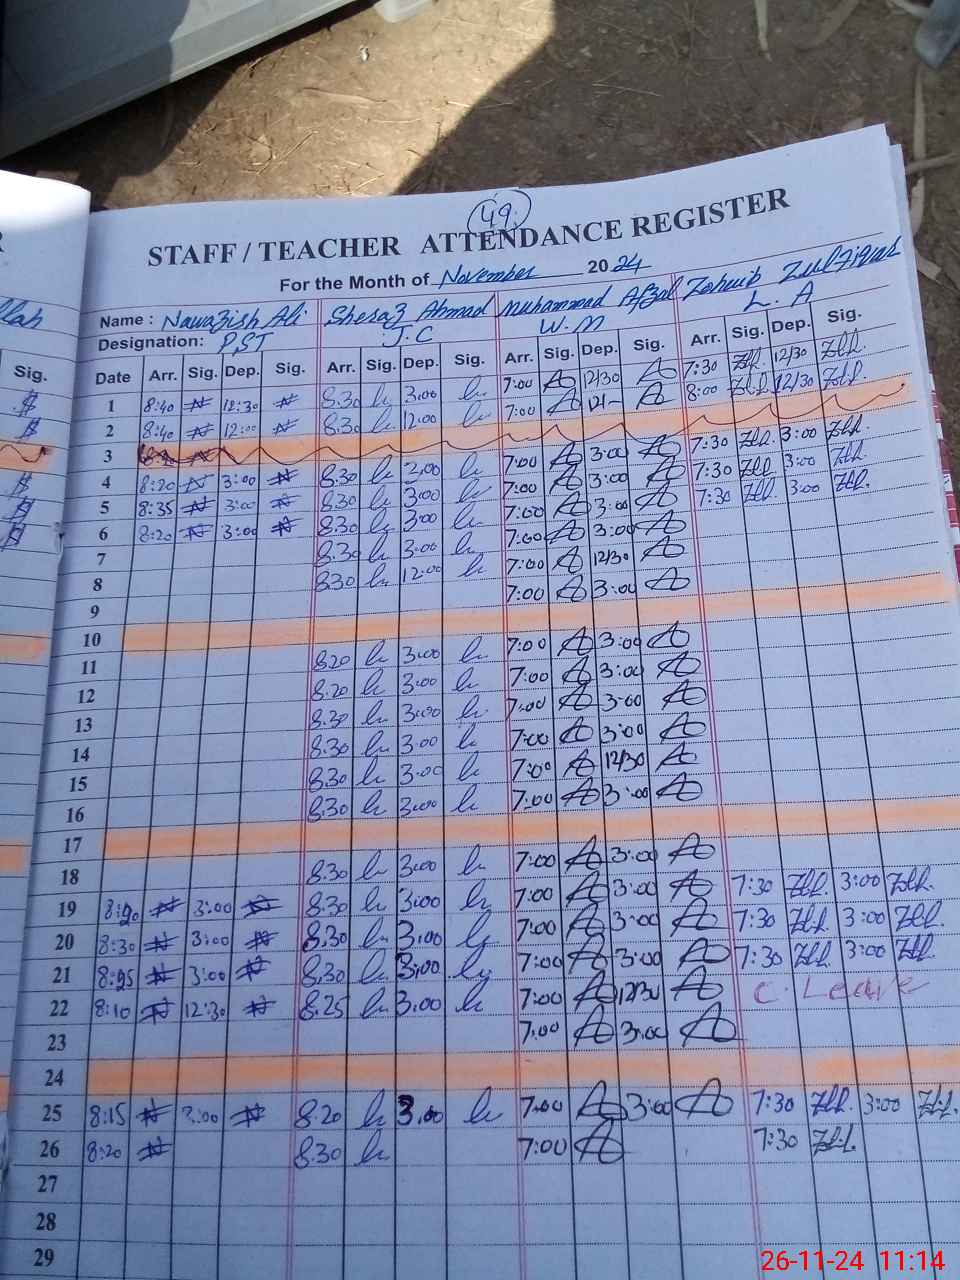 49
STAFF / TEACHER ATTENDANCE REGISTER
For the Month of November 2024
Name : Nawazish Ali Sheraz Ahmad Muhammad Afzal Zohaib Zulfiqar
Designation: PST J.C W.M L. A
Sig. Date Arr. Sig. Dep. Sig. Arr. Sig. Dep. Sig. Arr. Sig. Dep. Sig. Arr. Sig. Dep. Sig.
1 8:40 12:30 8.30 3.00 7:00 12/30 7:30 12/30
2 8:40 12:00 8.30 12.00 7:00 12/- 8:00 12/30
3
4 8:20 3:00 8.30 7:00 3:00 7:30 3:00
5 8:35 3:00 8.30 3.00 7:00 3:00 7:30 3:00
6 8:20 3:00 8.30 3.00 7:00 3:00 7:30 3:00
7 8.30 3.00 7:00 3:00
8 8.30 12.00 7:00 12/30
9 7:00 3:00
10
11 8.20 3.00 7:00 3:00
12 8.20 3.00 7:00 3:00
13 8.30 3.00 7:00 3:00
14 8.30 3.00 7:00 3:00
15 8.30 3.00 7:00 12/30
16 8.30 3.00 7:00 3:00
17
18 8.30 3.00 7:00 3:00
19 3:00 8.30 3.00 7:00 3:00 7:30 3:00
20 8:30 3:00 8.30 3.00 7:00 3:00 7:30 3:00
21 3:00 8.30 3.00 7:00 3:00 7:30 3:00
22 8:10 12:30 8.25 3.00 7:00 12/30 C. Leave
23 7:00 3:00
24
25 8:15 3:00 8.20 3.00 7:00 3:00 7:30 3:00
26 8:20 8.30 7:00 7:30
27
28
29
26-11-24 11:14